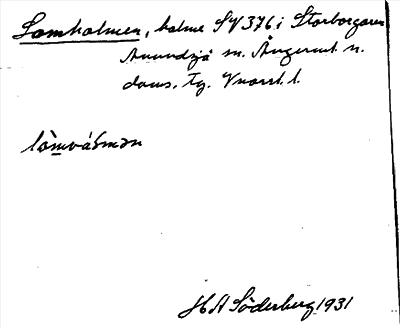 Lomholmen, holme SV 376 i Storborgaren
Anundsjö sn. Ångerml. n.
doms. Tg. Vnorrl. l.
lò̀mváɫmən
HA Söderberg 1931